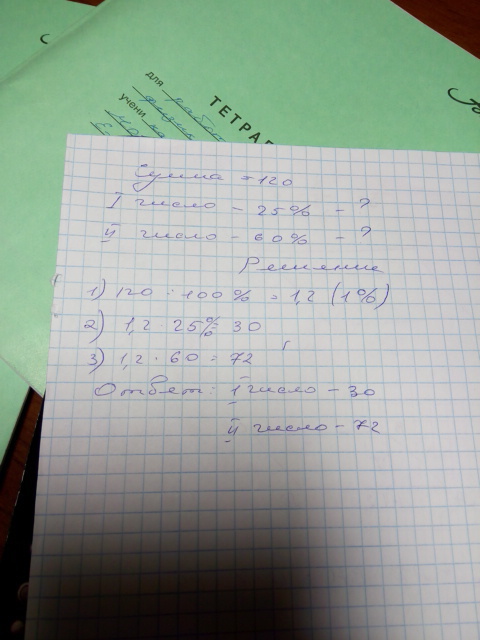 ТЕТРА
для работ
учени
Сумма = 120
I число - 25% - ?
II число - 60% - ?
Решение
1) 120 : 100% = 1,2 (1%)
2) 1,2 · 25% = 30
3) 1,2 · 60 = 72
Ответ: I число - 30
II число - 72